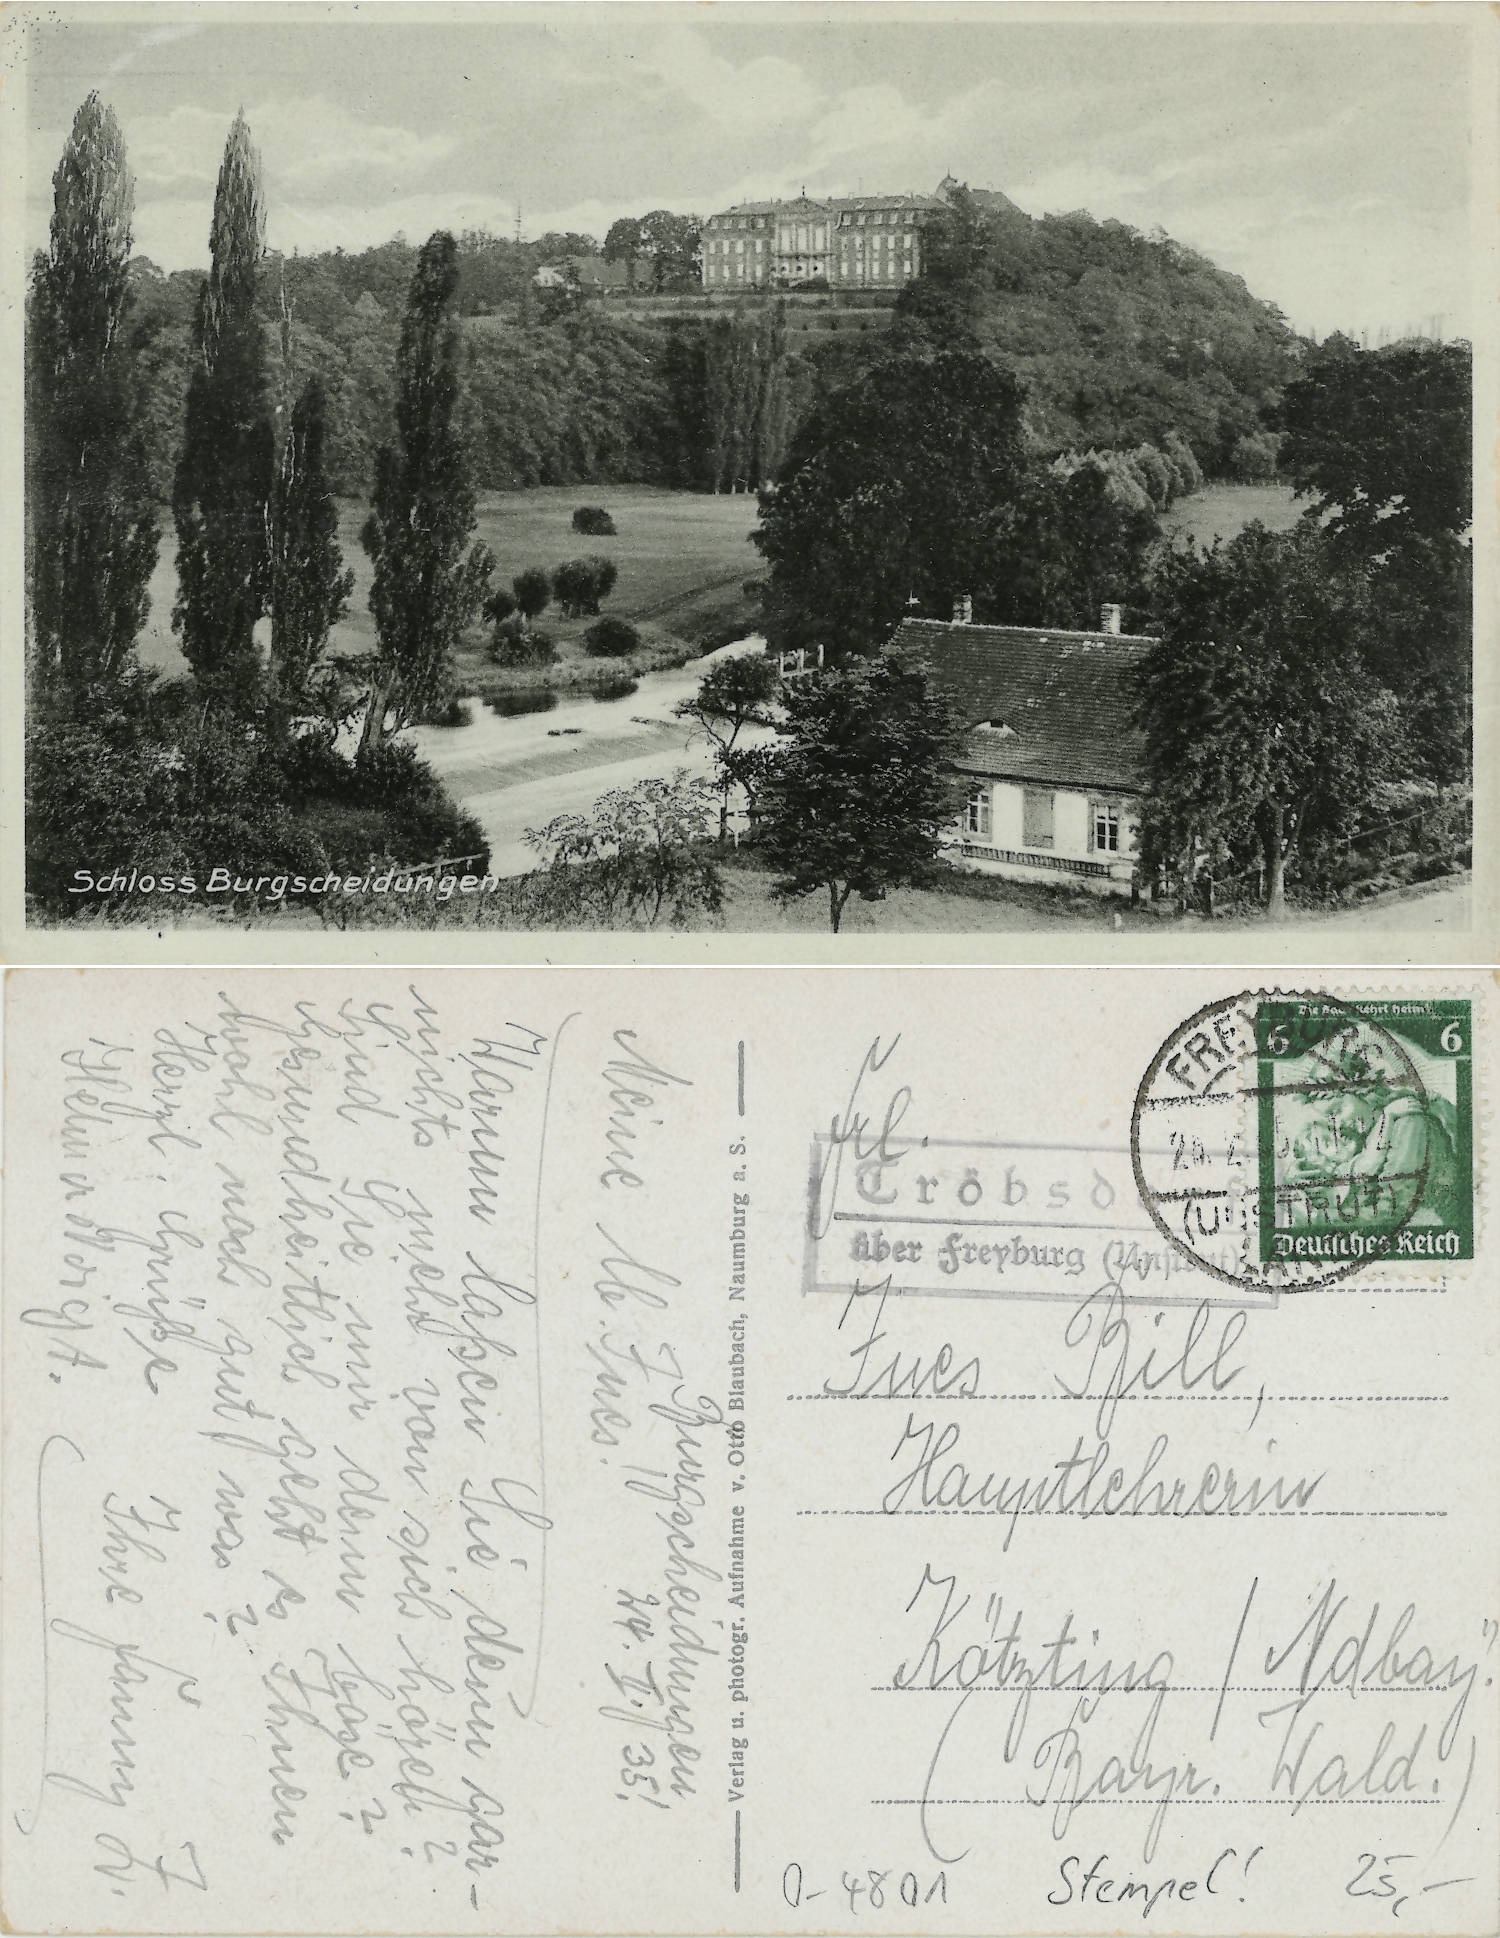 Schloss Burgscheidungen
Burgscheidungen
24. II./35!
Meine lb. Ines!
Warum lassen Sie denn gar-
nichts mehr von sich hören?
Sind Sie mir denn böse?
Gesundheitlich geht es Ihnen
wohl noch gut was?
Herzl. Grüße
Ihre Fanny
Verlag u. photogr. Aufnahme v. Otto Blaubach, Naumburg a. S.
Die Saar kehrt heim!
6 6
Deutsches Reich
FREYBURG
(UNSTRUT)
LAND
Tröbsd
über Freyburg (Unstrut)
Frl.
Ines Bill,
Hauptlehrerin
Kötzting / Ndbay.
(Bayr. Wald.)
O-4801 Stempel! 25,-